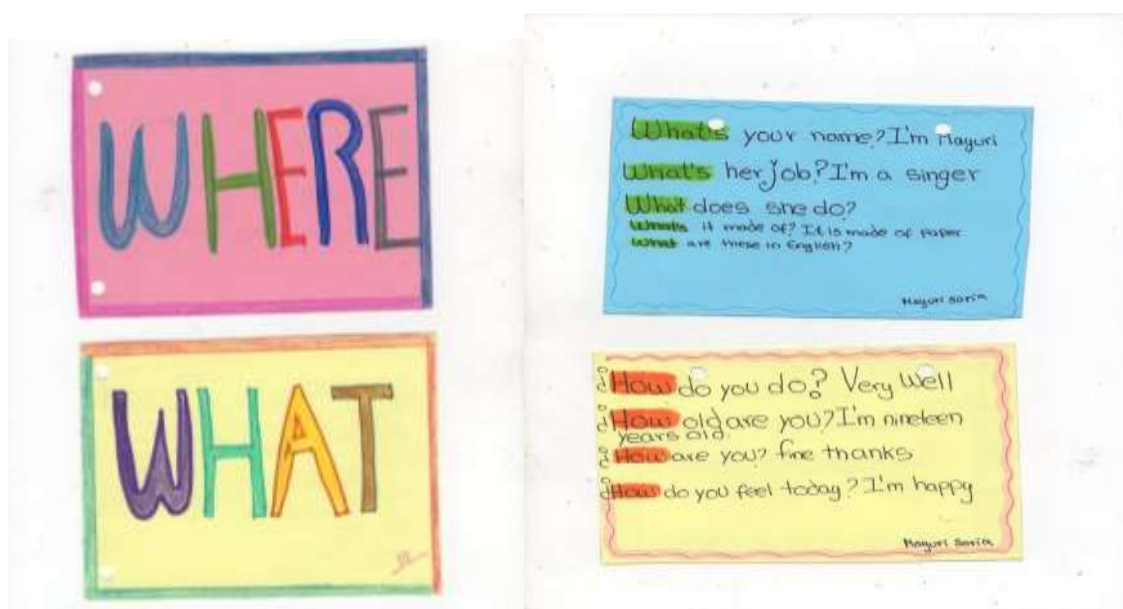 WHERE
WHAT
What's your name? I'm Mayuri
What's her job? I'm a singer
What does she do?
What's it made of? It is made of paper
What are these in English?
Mayuri Soria
How do you do? Very Well
How old are you? I'm nineteen
years old.
How are you? fine thanks
How do you feel today? I'm happy
Mayuri Soria